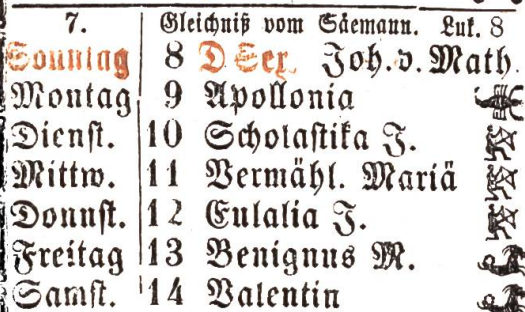 7. Gleichniß vom Säemann. Luk. 8
Sonntag 8 D Sex. Joh. v. Math.
Montag 9 Apollonia
Dienst. 10 Scholastika J.
Mittw. 11 Vermähl. Mariä
Donnst. 12 Eulalia J.
Freitag 13 Benignus M.
Samst. 14 Valentin